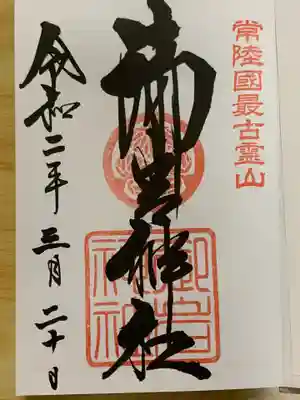 常陸國最古霊山
御岩神社
御岩
神社
令和二年三月二十日